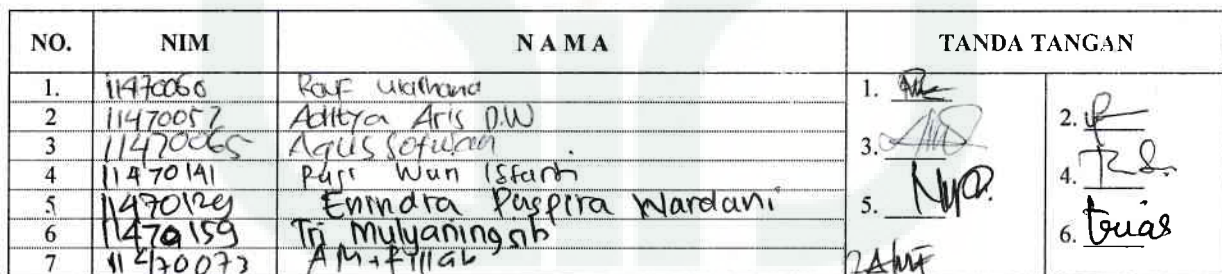 NO. NIM N A M A TANDA TANGAN
1. 11470060 Rauf 1.
2 11470057 Aditya Aris D.W 2.
3 11470065 Agus Sofwan 3.
4 11470141 Puji Wun Isfarti 4. R.S.
5 11470129 Enindra Puspira Wardani 5.
6 11470159 Tri Mulyaningsih 6. truas
7 11470073